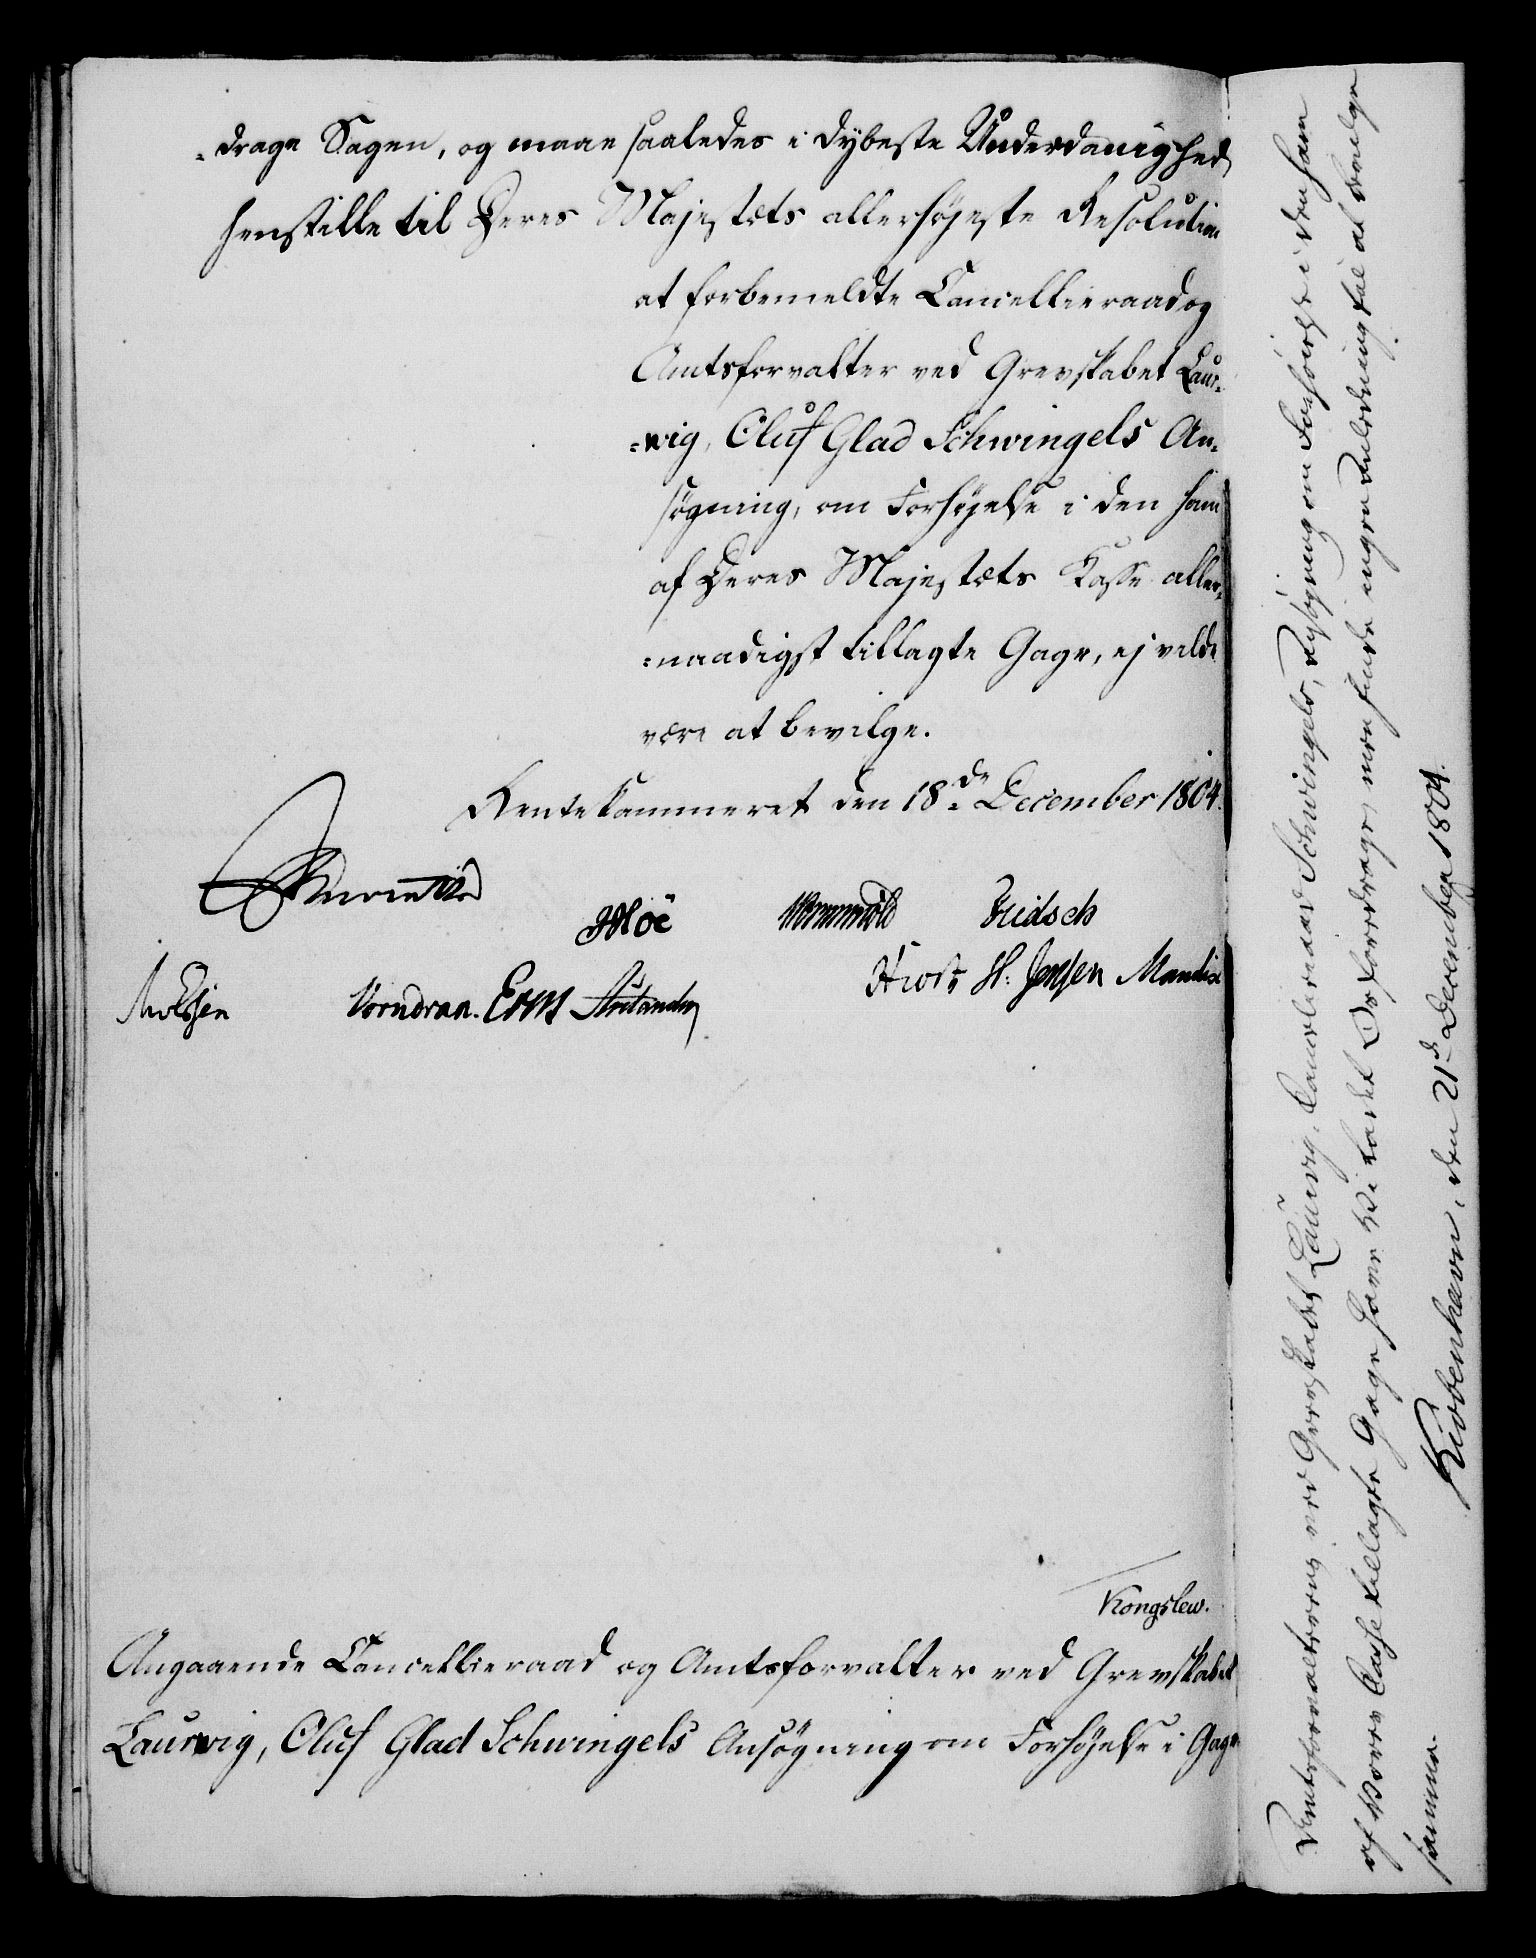 -drage Sagen, og maae saaledes i dybeste Underdanighed
henstille til Deres Majestæts allerhøjeste Resolution
at forbemeldte Cancellieraad og
Amtsforvalter ved Grevskabet Laur-
-vig, Oluf Glad Schwingels An-
søgning, om Forhøjelse i den ham
af Deres Majestæts Kasse aller-
-naadigst tillagte Gage, ej vilde
være at bevilge.
Rentekammeret den 18de December 1804.
Reventlow
Moe Wormskiold Fridsch
Knoldsen Vorndran. Erns Hiort H: Jensen Mandix
Kongslew.
Angaaende Cancellieraad og Amtsforvalter ved Grevskabet
Laurvig, Oluf Glad Schwingels Ansøgning om Forhøjelse i Gage
Amtsforvalteren ved Grevskabet Laurvig, Cancelieraad Schwingels, Ansøgning om Forhøielse i den ham
af Vores Casse tillagte Gage have Vi ladet Os foredrage, men finde ingen Anledning til at bevilge
samme.
Kiøbenhavn, den 21de December 1804.